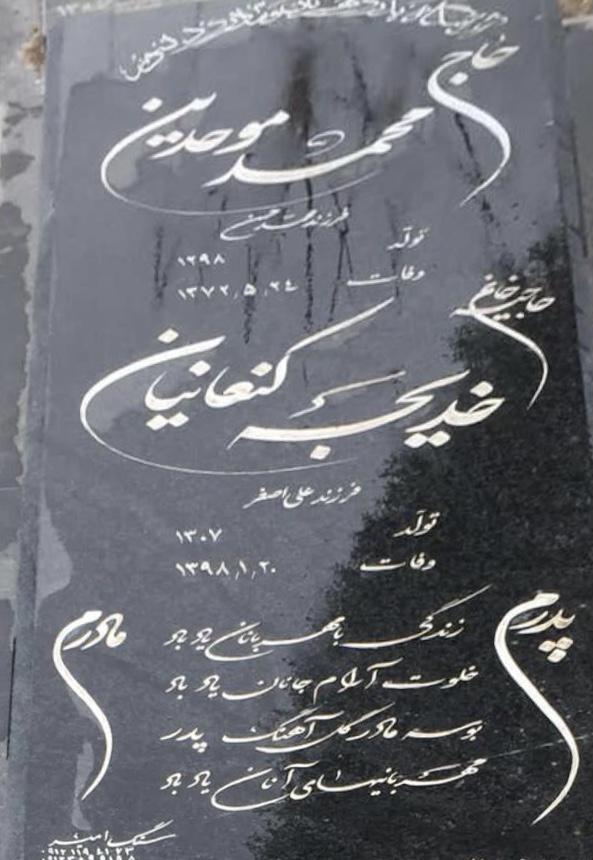 حاج
محمد موحدین
فرزند محمد حسن
تولد ۱۲۹۸
وفات ۱۳۷۲٫۵٫۲۴
حاجیه خانم
خدیجه کنعانیان
فرزند علی اصغر
تولد ۱۳۰۷
وفات ۱۳۹۸٫۱٫۲۰
پدرم
مادرم
زندگی با مهربانان یاد باد
خلوت آرام جانان یاد باد
بوسه مادر گل آهنگ پدر
مهربانیهای آنان یاد باد
سنگ امید